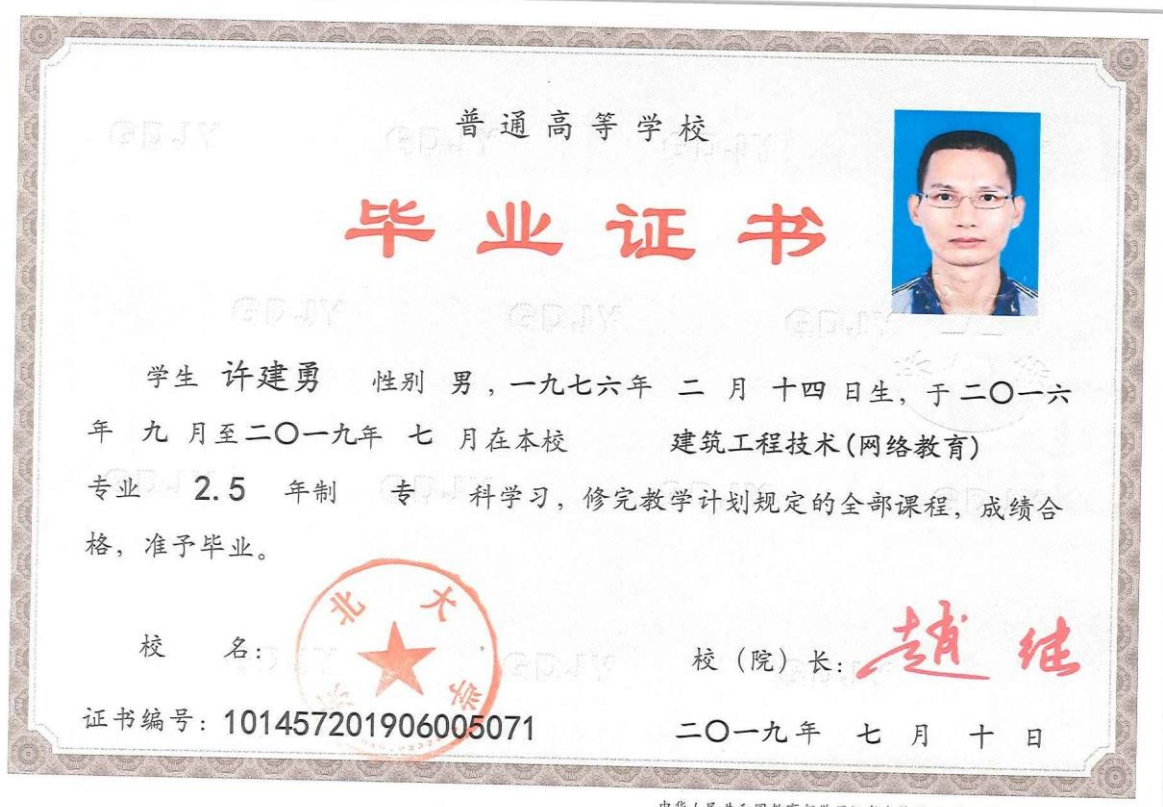 普通高等学校
毕业证书
学生 许建勇 性别 男，一九七六年 二 月 十四 日生，于二〇一六
年 九 月至二〇一九年 七 月在本校 建筑工程技术(网络教育)
专业 2.5 年制 专 科学习，修完教学计划规定的全部课程，成绩合
格，准予毕业。
北大学
校 名：
校（院）长：赵继
证书编号：101457201906005071
二〇一九年 七 月 十 日